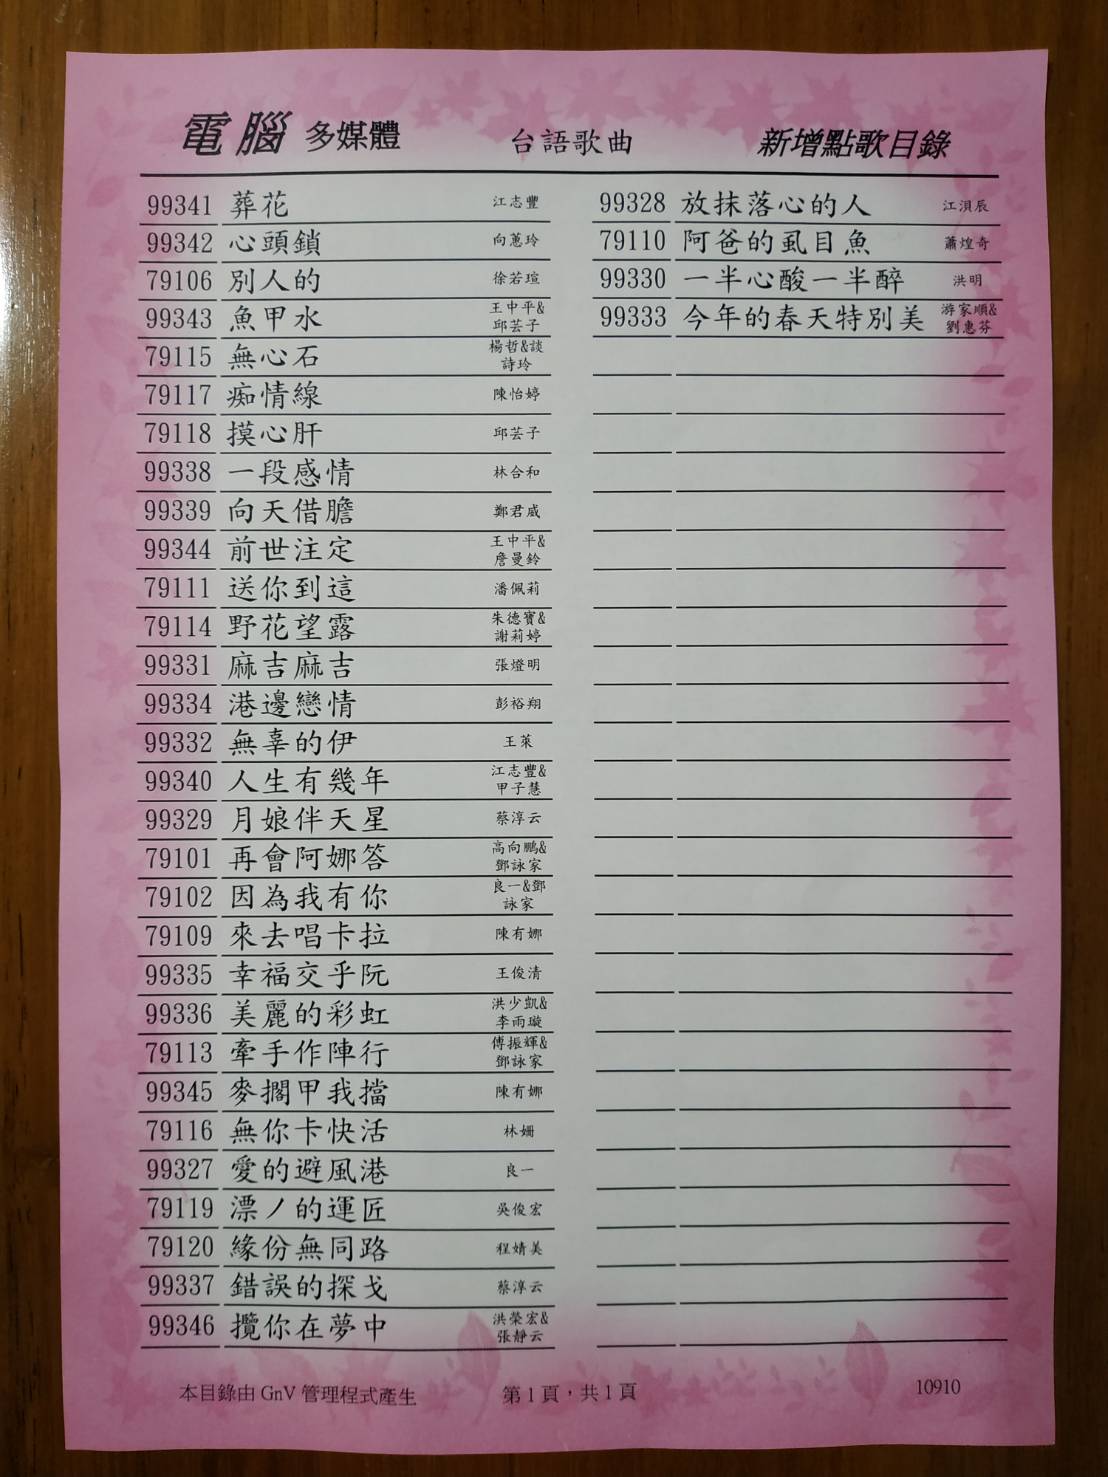 電腦 多媒體 台語歌曲 新增點歌目錄
99341 葬花 江志豐
99342 心頭鎖 向蕙玲
79106 別人的 徐若瑄
99343 魚甲水 王中平&邱芸子
79115 無心石 楊哲&談詩玲
79117 痴情線 陳怡婷
79118 摸心肝 邱芸子
99338 一段感情 林合和
99339 向天借膽 鄭君威
99344 前世注定 王中平&詹曼鈴
79111 送你到這 潘佩莉
79114 野花望露 朱德寶&謝莉婷
99331 麻吉麻吉 張燈明
99334 港邊戀情 彭裕翔
99332 無辜的伊 王萊
99340 人生有幾年 江志豐&甲子慧
99329 月娘伴天星 蔡淳云
79101 再會阿娜答 高向鵬&鄧詠家
79102 因為我有你 良一&鄧詠家
79109 來去唱卡拉 陳有娜
99335 幸福交乎阮 王俊清
99336 美麗的彩虹 洪少凱&李雨璇
79113 牽手作陣行 傅振輝&鄧詠家
99345 麥擱甲我擋 陳有娜
79116 無你卡快活 林姍
99327 愛的避風港 良一
79119 漂ノ的運匠 吳俊宏
79120 緣份無同路 程婧美
99337 錯誤的探戈 蔡淳云
99346 攬你在夢中 洪榮宏&張靜云
99328 放抹落心的人 江淏辰
79110 阿爸的虱目魚 蕭煌奇
99330 一半心酸一半醉 洪明
99333 今年的春天特別美 游家順&劉惠芬
本目錄由 GnV 管理程式產生 第1頁，共1頁 10910